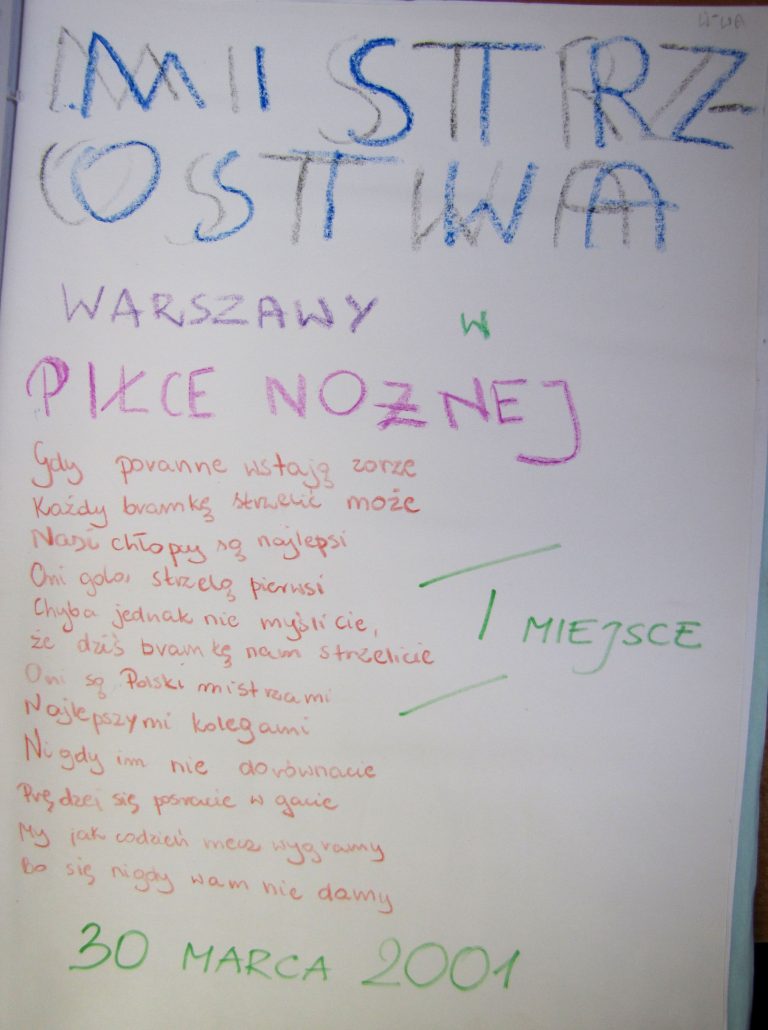 W-WA
MISTRZ-
OSTWA
WARSZAWY W
PIŁCE NOŻNEJ
Gdy poranne wstają zorze
Każdy bramkę strzelić może
Nasi chłopcy są najlepsi
Oni gola strzelą pierwsi
Chyba jednak nie myślicie,
że dziś bramkę nam strzelicie
Oni są Polski mistrzami
Najlepszymi kolegami
Nigdy im nie dorównacie
Prędzej się posracie w gacie
My jak codzień mecz wygramy
Bo się nigdy wam nie damy
I MIEJSCE
30 MARCA 2001